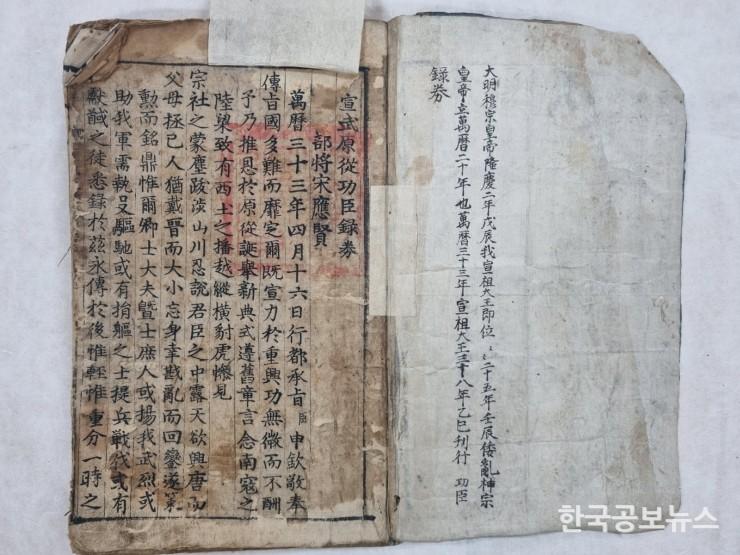 大明穆宗皇帝隆慶二年戊辰我宣祖大王即位〻〻二十五年壬辰倭亂神宗
皇帝立萬曆二十年也萬曆三十三年宣祖大王三十八年乙巳刊行 功臣
錄券
宣武原從功臣錄券
部將宋應賢
萬曆三十三年四月十六日行都承旨臣申欽敬奉
傳旨國多難而靡定爾旣宣力於重興功無微而不酬
予乃推恩於原從誕擧新典式遵舊章言念南寇之
陸梁致有西土之播越縱橫豺虎慘見
宗社之蒙塵跋涉山川忍說君臣之中露天欲興唐而
父母拯已人猶戴晉而大小忘身幸戡亂而回鑾遂策
勳而銘鼎惟爾卿士大夫曁士庶人或揚我武烈或
助我軍需執殳驅馳或有捐軀之士提兵戰伐或有
獻馘之徒悉錄於玆永傳於後惟輕惟重分一時之
한국공보뉴스